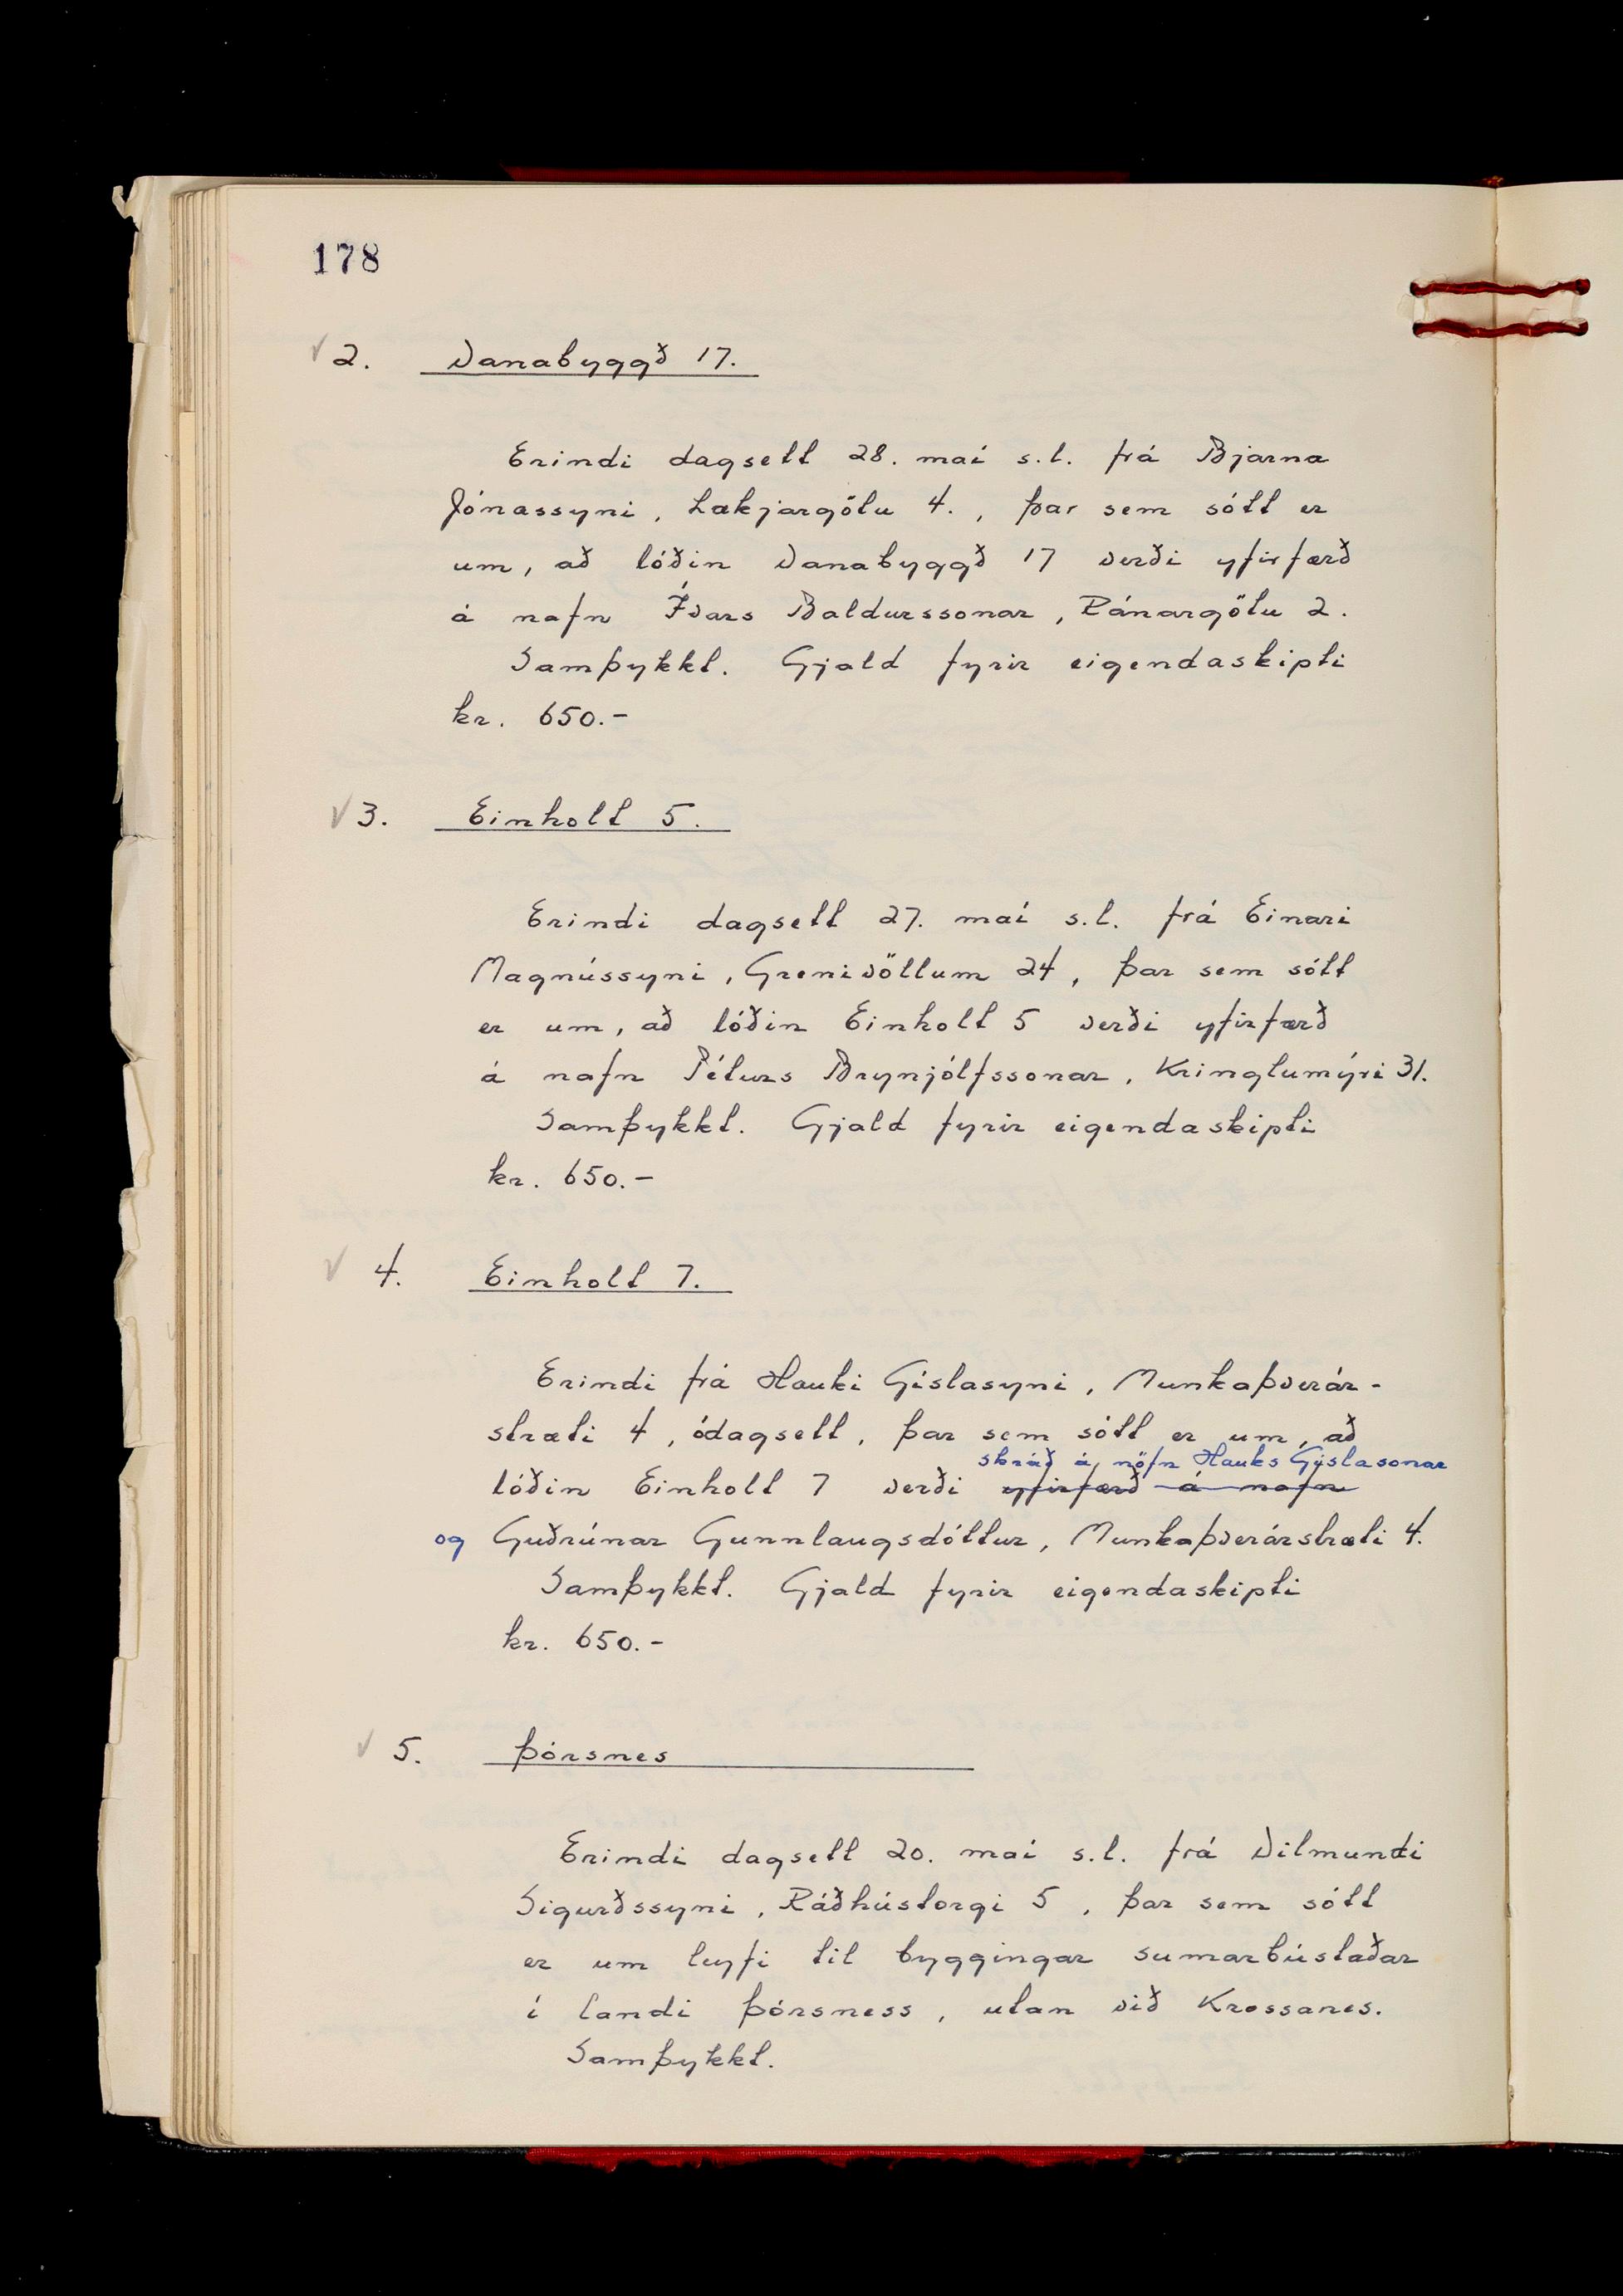 178
✓ 2. Vanabyggð 17.
Erindi dagsett 28. maí s.l. frá Bjarna
Jónassyni, Lækjargötu 4., þar sem sótt er
um, að lóðin Vanabyggð 17 verði yfirfærð
á nafn Ívars Baldurssonar, Ránargötu 2.
Samþykkt. Gjald fyrir eigendaskipti
kr. 650.-
✓ 3. Einholt 5.
Erindi dagsett 27. maí s.l. frá Einari
Magnússyni, Grenivöllum 24, þar sem sótt
er um, að lóðin Einholt 5 verði yfirfærð
á nafn Péturs Brynjólfssonar, Kringlumýri 31.
Samþykkt. Gjald fyrir eigendaskipti
kr. 650.-
✓ 4. Einholt 7.
Erindi frá Hauki Gíslasyni, Munkaþverár-
stræti 4, ódagsett, þar sem sótt er um, að
skráð á nöfn Hauks Gíslasonar
lóðin Einholt 7 verði yfirfærð á nafn
og Guðrúnar Gunnlaugsdóttur, Munkaþverárstræti 4.
Samþykkt. Gjald fyrir eigendaskipti
kr. 650.-
✓ 5. Þórsnes
Erindi dagsett 20. maí s.l. frá Vilmundi
Sigurðssyni, Ráðhústorgi 5, þar sem sótt
er um leyfi til byggingar sumarbústaðar
í landi Þórsness, utan við Krossanes.
Samþykkt.